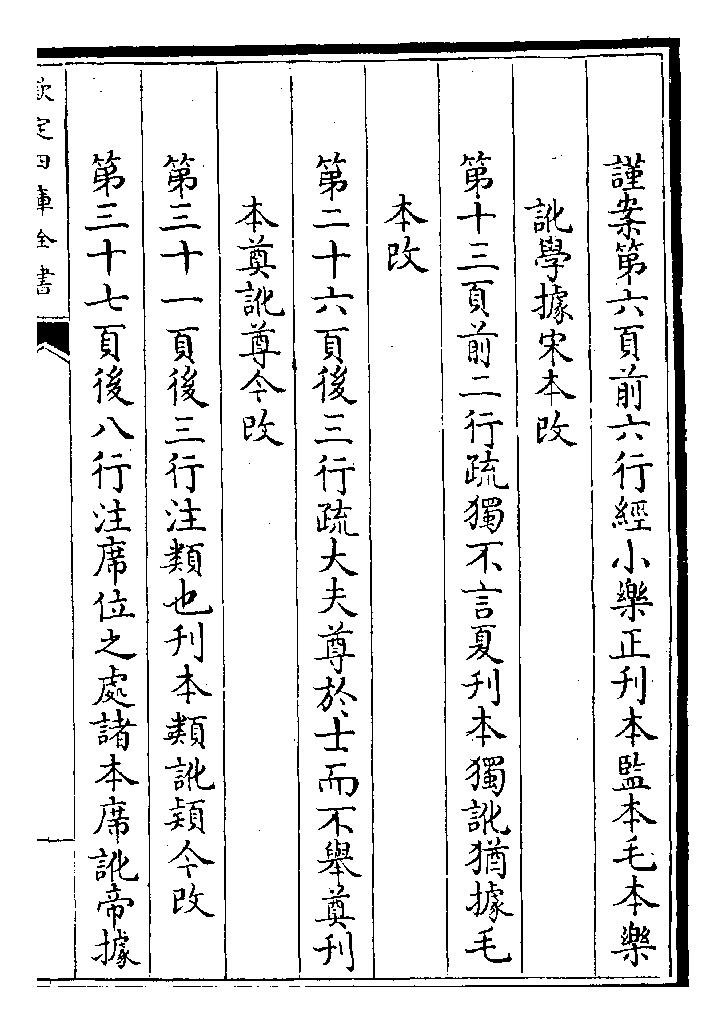 謹案第六頁前六行經小樂正刊本監本毛本樂
訛學據宋本改
第十三頁前二行疏獨不言夏刊本獨訛猶據毛
本改
第二十六頁後三行疏大夫尊於士而不舉奠刊
本奠訛尊今改
第三十一頁後三行注類也刊本類訛穎今改
第三十七頁後八行注席位之處諸本席訛帝據
欽定四庫全書